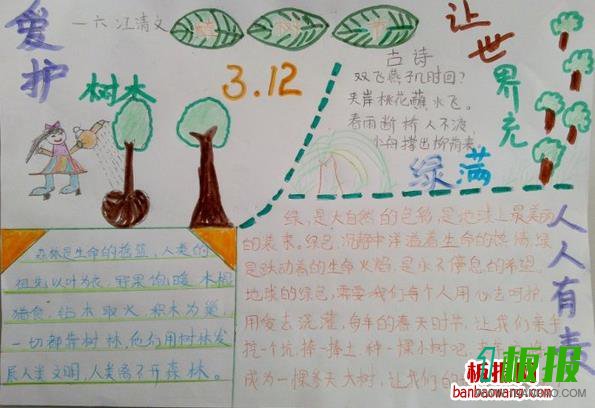 爱护
一六 江清文
植 树 节
让世界充
3.12
树木
古诗
双飞燕子几时回?
夹岸桃花蘸水飞。
春雨断桥人不渡
小舟撑出柳荫来
绿满
人人有责
森林是生命的摇篮,人类的
祖先以叶为衣,野果饱暖 木棍
猎食,钻木取火,积木为巢,
一切都靠树林,他们用树林发
展人类文明,人类离不开森林。
绿,是大自然的色彩,是地球上最美丽
的装束。绿色,沉静中洋溢着生命的热情,绿
是跃动着的生命火焰,是永不停息的希望。
地球的绿色,需要我们每个人用心去呵护,
用爱去浇灌,每年的春天时节,让我们亲手
挖一个坑,捧一捧土,种一棵小树吧
成为一棵参天大树,让我们的
板报网
banbaowang.com
板报
baowang.com